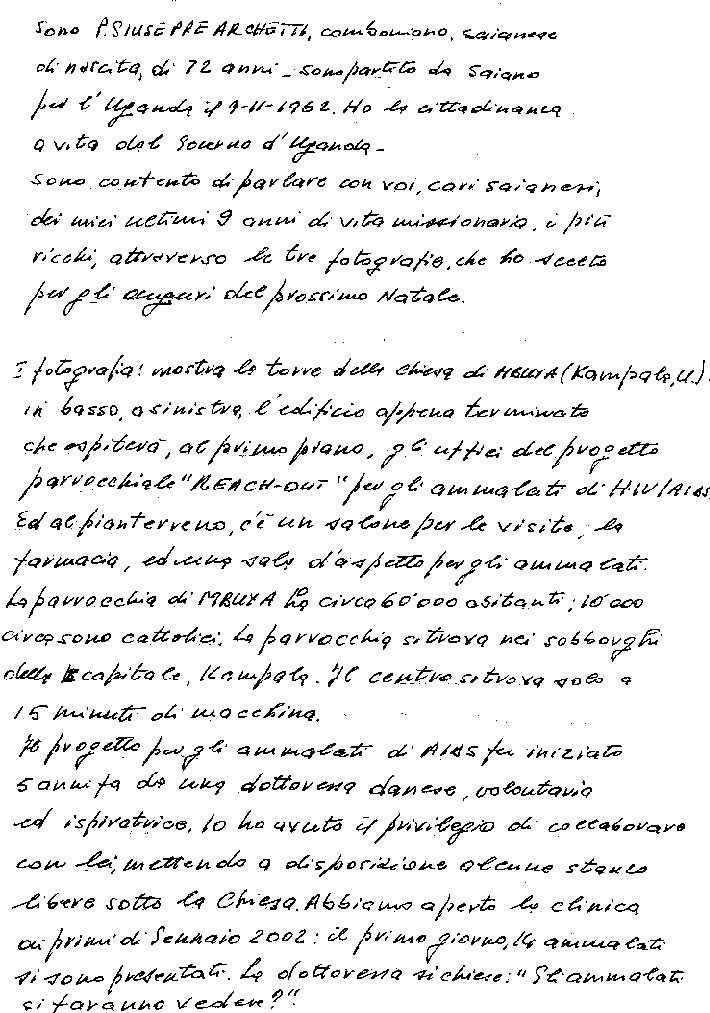 Sono P. GIUSEPPE ARCHETTI, comboniano, saianese
di nascita, di 72 anni - sono partito da Saiano
per l'Uganda il 9-11-1962. Ho la cittadinanza
a vita dal Governo d'Uganda -
Sono contento di parlare con voi, cari saianesi,
dei miei ultimi 9 anni di vita missionaria, i più
ricchi, attraverso le tre fotografie, che ho scelto
per gli auguri del prossimo Natale.
I fotografia: mostra la torre della Chiesa di MBUYA (Kampala, U.).
in basso, a sinistra, l'edificio appena terminato
che ospiterà, al primo piano, gli uffici del progetto
parrocchiale "REACH-OUT" per gli ammalati di HIV/AIDS.
Ed al pianterreno, c'è un salone per le visite, la
farmacia, ed una sala d'aspetto per gli ammalati.
La parrocchia di MBUYA ha circa 60'000 abitanti; 10'000
circa sono cattolici. La parrocchia si trova nei sobborghi
della capitale, Kampala. Il centro si trova solo a
15 minuti di macchina.
Il progetto per gli ammalati di AIDS fu iniziato
5 anni fa da una dottoressa danese, volontaria
ed ispiratrice. Io ho avuto il privilegio di collaborare
con lei, mettendo a disposizione alcune stanze
libere sotto la Chiesa. Abbiamo aperto la clinica
ai primi di Gennaio 2002: il primo giorno, 14 ammalati
si sono presentati. La dottoressa si chiese: "Gli ammalati
si faranno vedere?".